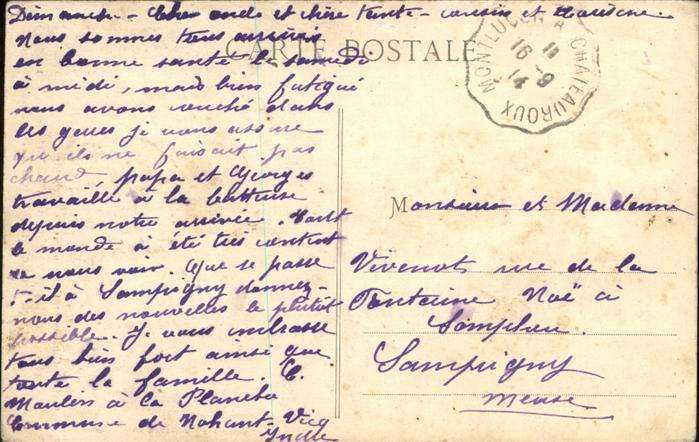 Dimanche - Cher oncle et chère tante - cousin et cousine
Nous sommes tous arrivés
en bonne santé le samedi
à midi, mais bien fatigué
nous avons couché dans
les gares je vous assure
qu'ils ne faisait pas
chaud papa et Georges
travaille à la batteuse
depuis notre arrivée. Tout
le monde à été très content
de nous voir. Que se passe
t-il à Sampigny donnez-
nous des nouvelles le plutôt
possible. Je vous embrasse
tous bien fort ainsi que
toute la famille C.
à la Planche
Commune de Nohant-Vicq
Indre
CARTE POSTALE
MONTLUÇON A CHATEAUROUX
16-9
14
Monsieur et Madame
Vivenot rue de la
Fontaine Noë à
Sampigny
Meuse